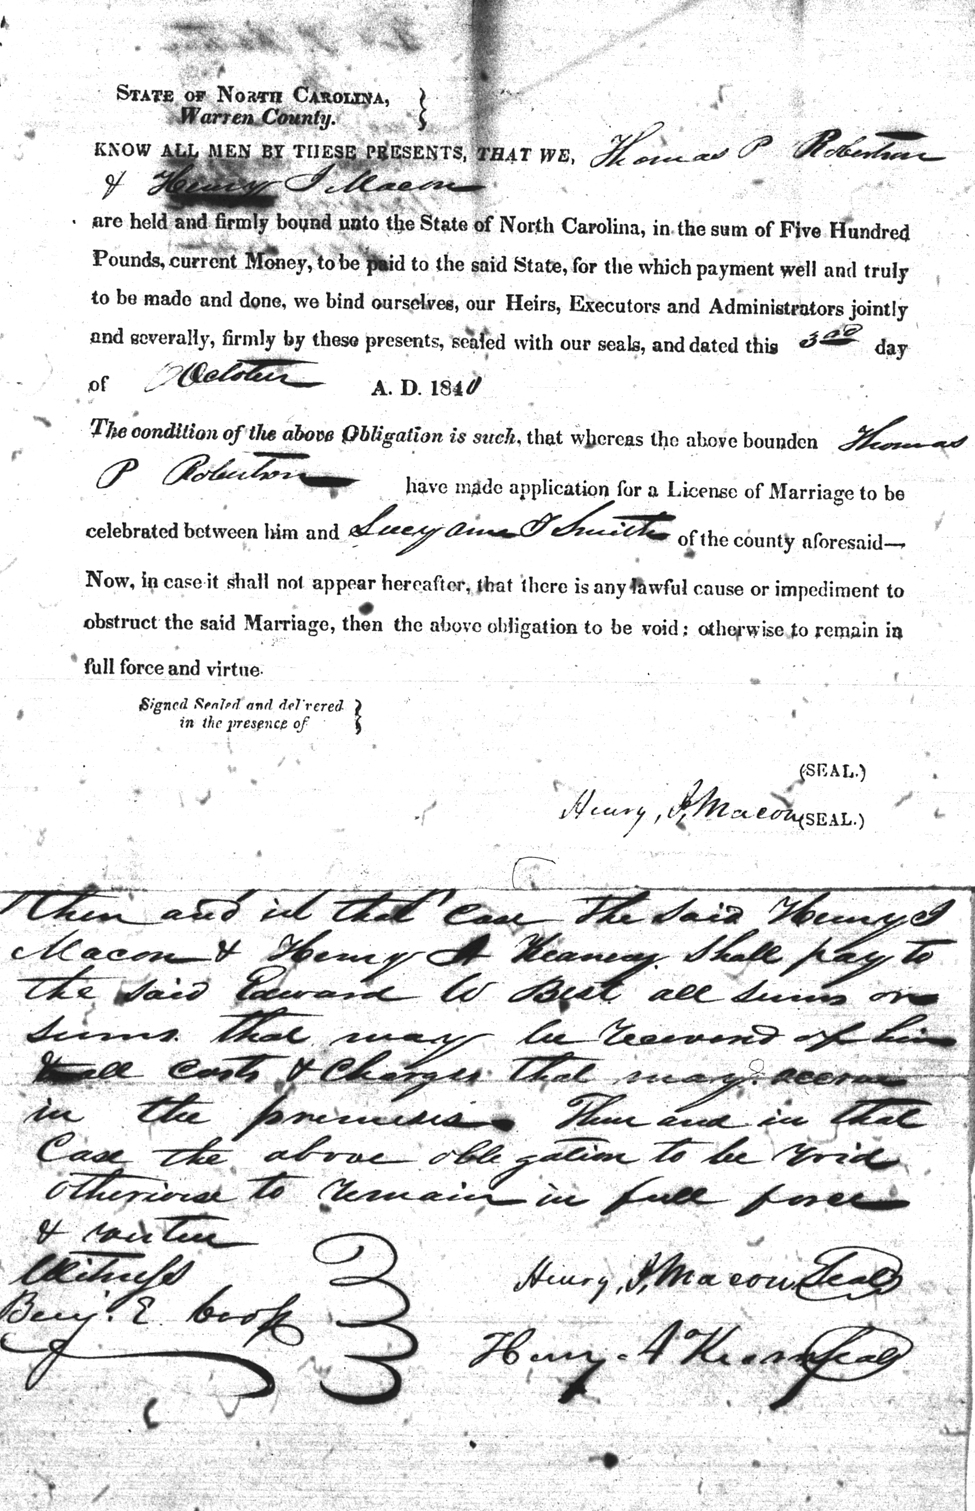 STATE OF NORTH CAROLINA,
Warren County.
KNOW ALL MEN BY THESE PRESENTS, THAT WE, Thomas P Robertson
& Henry J Macon
are held and firmly bound unto the State of North Carolina, in the sum of Five Hundred
Pounds, current Money, to be paid to the said State, for the which payment well and truly
to be made and done, we bind ourselves, our Heirs, Executors and Administrators jointly
and severally, firmly by these presents, sealed with our seals, and dated this 3rd day
of October A. D. 1840
The condition of the above Obligation is such, that whereas the above bounden Thomas
P Robertson have made application for a License of Marriage to be
celebrated between him and Lucy Ann J Smith of the county aforesaid—
Now, in case it shall not appear hereafter, that there is any lawful cause or impediment to
obstruct the said Marriage, then the above obligation to be void; otherwise to remain in
full force and virtue.
Signed Sealed and delivered
in the presence of
(SEAL.)
Henry, J, Macon (SEAL.)
then and in that Case The said Henry J
Macon & Henry A Kearney shall pay to
the said Edward W Best all sums or
sums that may be recoverd of him
& all costs & Charges that may accrue
in the premises. Then and in that
Case the above obligation to be void
otherwise to remain in full force
& virtue
Witness
Benj. E. Cook
Henry, J, Macon Seal
Henry. A Kearney Seal